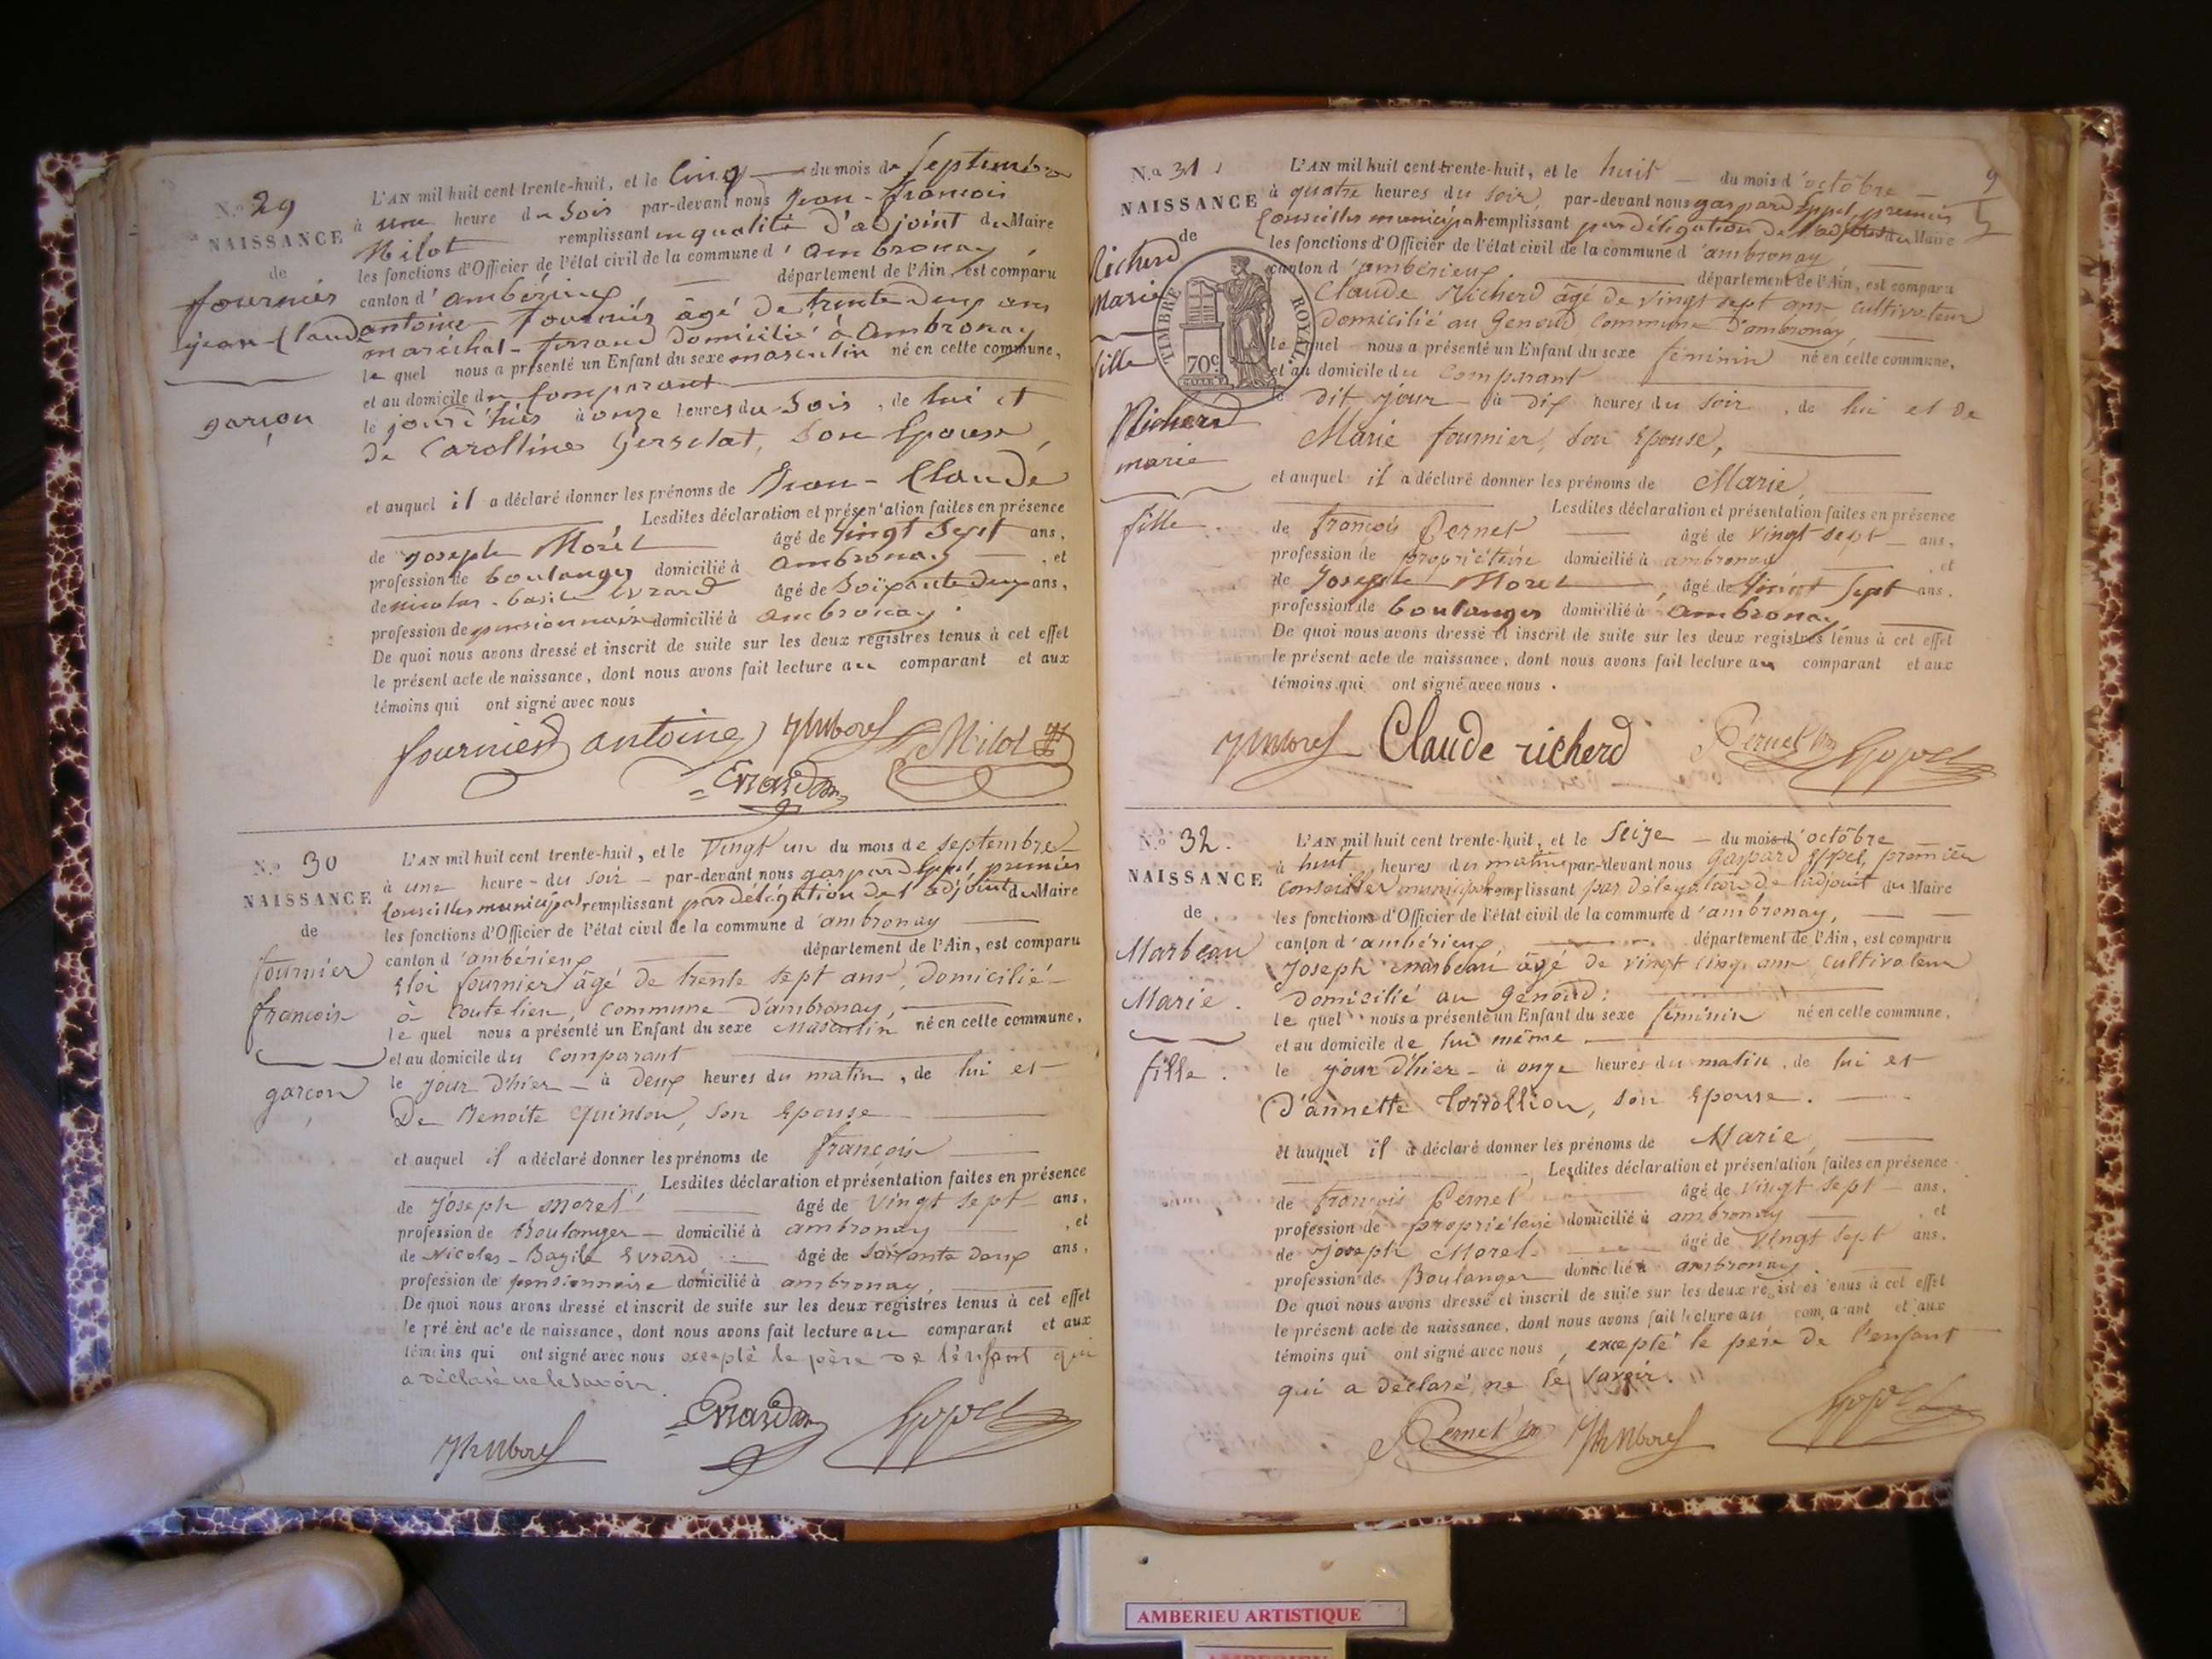 N.o 29
NAISSANCE
de
fournier
jean-Claude
garçon
L'AN mil huit cent trente-huit, et le Cinq du mois de Septembre
à une heure du Soir par-devant nous Jean-françois
Milot remplissant en qualité d'adjoint du Maire
les fonctions d'Officier de l'état civil de la commune d'ambronay,
canton d'ambérieux département de l'Ain, est comparu
antoine fournier âgé de trente deux ans
maréchal-ferrand domicilié à ambronay
le quel nous a présenté un Enfant du sexe masculin né en cette commune,
et au domicile du Comparant
le jour d'hier à onze heures du Soir, de lui et
de Carolline Gerselat, Son Epouse,
et auquel il a déclaré donner les prénoms de Jean-Claude
Lesdites déclaration et présentation faites en présence
de joseph Morel âgé de vingt Sept ans,
profession de boulanger domicilié à ambronay, et
de nicolas-basile Evrard âgé de Soixante deux ans,
profession de pensionnaire domicilié à ambronay.
De quoi nous avons dressé et inscrit de suite sur les deux registres tenus à cet effet
le présent acte de naissance, dont nous avons fait lecture au comparant et aux
témoins qui ont signé avec nous
fournier antoine Milot
Evrard
N.o 30
NAISSANCE
de
fournier
françois
garçon
L'AN mil huit cent trente-huit, et le Vingt un du mois de septembre
à une heure du Soir par-devant nous gaspard Eppel, premier
Conseiller municipal remplissant par délégation de l'adjoint du Maire
les fonctions d'Officier de l'état civil de la commune d'ambronay
canton d'ambérieux département de l'Ain, est comparu
Eloi fournier âgé de trente sept ans, domicilié
à Coutelieu, commune d'ambronay,
le quel nous a présenté un Enfant du sexe Masculin né en cette commune,
et au domicile du Comparant
le jour d'hier à deux heures du matin, de lui et
De Benoite Quinson, son Epouse
et auquel il a déclaré donner les prénoms de françois
Lesdites déclaration et présentation faites en présence
de Joseph Morel âgé de Vingt Sept ans,
profession de Boulanger domicilié à ambronay, et
de Nicolas-Bazile Evrard âgé de Soixante deux ans,
profession de pensionnaire domicilié à ambronay,
De quoi nous avons dressé et inscrit de suite sur les deux registres tenus à cet effet
le présent acte de naissance, dont nous avons fait lecture au comparant et aux
témoins qui ont signé avec nous excepté le père de l'enfant qui
a déclaré ne le savoir.
Evrard Eppel
N.o 31
NAISSANCE
de
Richerd
Marie
fille
TIMBRE ROYAL
70c
Richerd
marie
fille.
9
L'AN mil huit cent trente-huit, et le huit du mois d'octobre
à quatre heures du Soir, par-devant nous gaspard Eppel, premier
Conseiller municipal remplissant par délégation de l'adjoint du Maire
les fonctions d'Officier de l'état civil de la commune d'ambronay
canton d'ambérieux département de l'Ain, est comparu
Claude Richerd âgé de vingt sept ans, cultivateur
domicilié au Genoud commune d'ambronay,
le quel nous a présenté un Enfant du sexe féminin né en cette commune,
et au domicile du Comparant
le dit jour à dix heures du soir, de lui et de
Marie fournier, son Epouse,
et auquel il a déclaré donner les prénoms de Marie,
Lesdites déclaration et présentation faites en présence
de françois Pernet âgé de vingt sept ans,
profession de propriétaire domicilié à ambronay et
de Joseph Morel, âgé de vingt Sept ans,
profession de boulanger domicilié à ambronay
De quoi nous avons dressé et inscrit de suite sur les deux registres tenus à cet effet
le présent acte de naissance, dont nous avons fait lecture au comparant et aux
témoins qui ont signé avec nous.
Claude richerd Pernet Eppel
N.o 32.
NAISSANCE
de
Marbeau
Marie.
fille.
L'AN mil huit cent trente-huit, et le Seize du mois d'octobre
à huit heures du matin par-devant nous Gaspard Eppel, premier
Conseiller municipal remplissant par délégation de l'adjoint du Maire
les fonctions d'Officier de l'état civil de la commune d'ambronay,
canton d'ambérieux, département de l'Ain, est comparu
Joseph Marbeau âgé de vingt cinq ans cultivateur
domicilié au Genoud:
le quel nous a présenté un Enfant du sexe féminin né en cette commune,
et au domicile de lui même
le jour d'hier à onze heures du matin, de lui et
d'annette Torrollion, son Epouse.
et auquel il a déclaré donner les prénoms de Marie
Lesdites déclaration et présentation faites en présence
de françois Pernet âgé de vingt sept ans,
profession de propriétaire domicilié à ambronay, et
de Joseph Morel âgé de Vingt Sept ans,
profession de Boulanger domicilié à ambronay.
De quoi nous avons dressé et inscrit de suite sur les deux registres tenus à cet effet
le présent acte de naissance, dont nous avons fait lecture au comparant et aux
témoins qui ont signé avec nous, excepté le père de l'enfant
qui a déclaré ne le savoir.
Pernet Eppel
AMBERIEU ARTISTIQUE
AMBERIEU